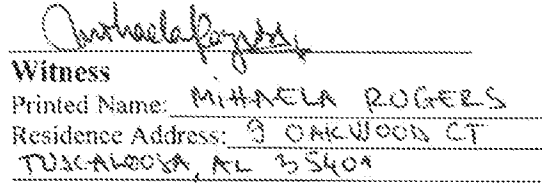 Witness
Printed Name: MIHAELA ROGERS
Residence Address: 9 OAKWOOD CT
TUSCALOOSA, AL 35401